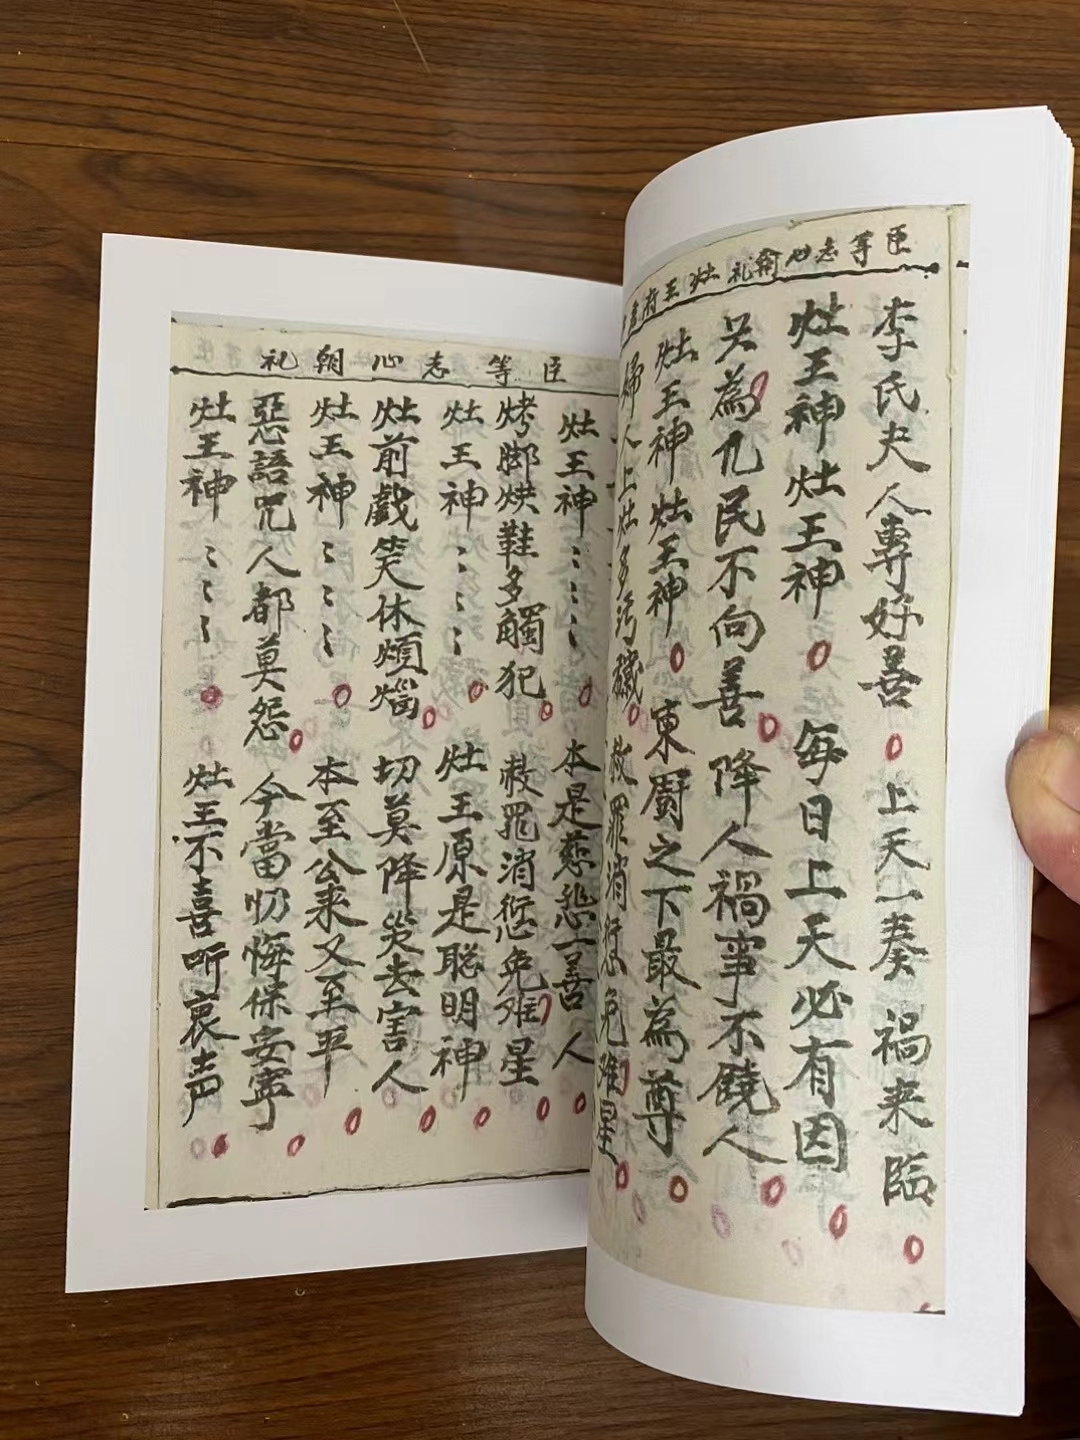 臣等志心朝礼灶王府
李氏夫人專好善 上天一奏禍来臨
灶王神灶王神 每日上天必有因
只為凡民不向善 降人禍事不饒人
灶王神灶王神 東厨之下最為尊
婦人上灶多污穢 赦罪消愆免难星
臣等志心朝礼
灶王神〻〻〻 本是慈悲一善人
烤脚烘鞋多觸犯 赦罪消愆免难星
灶王神〻〻〻 灶王原是聪明神
灶前戲笑休煩惱 切莫降災去害人
灶王神〻〻〻 本至公来又至平
惡語咒人都莫怨 今當忉悔保安寧
灶王神〻〻〻 灶王不喜听哀声